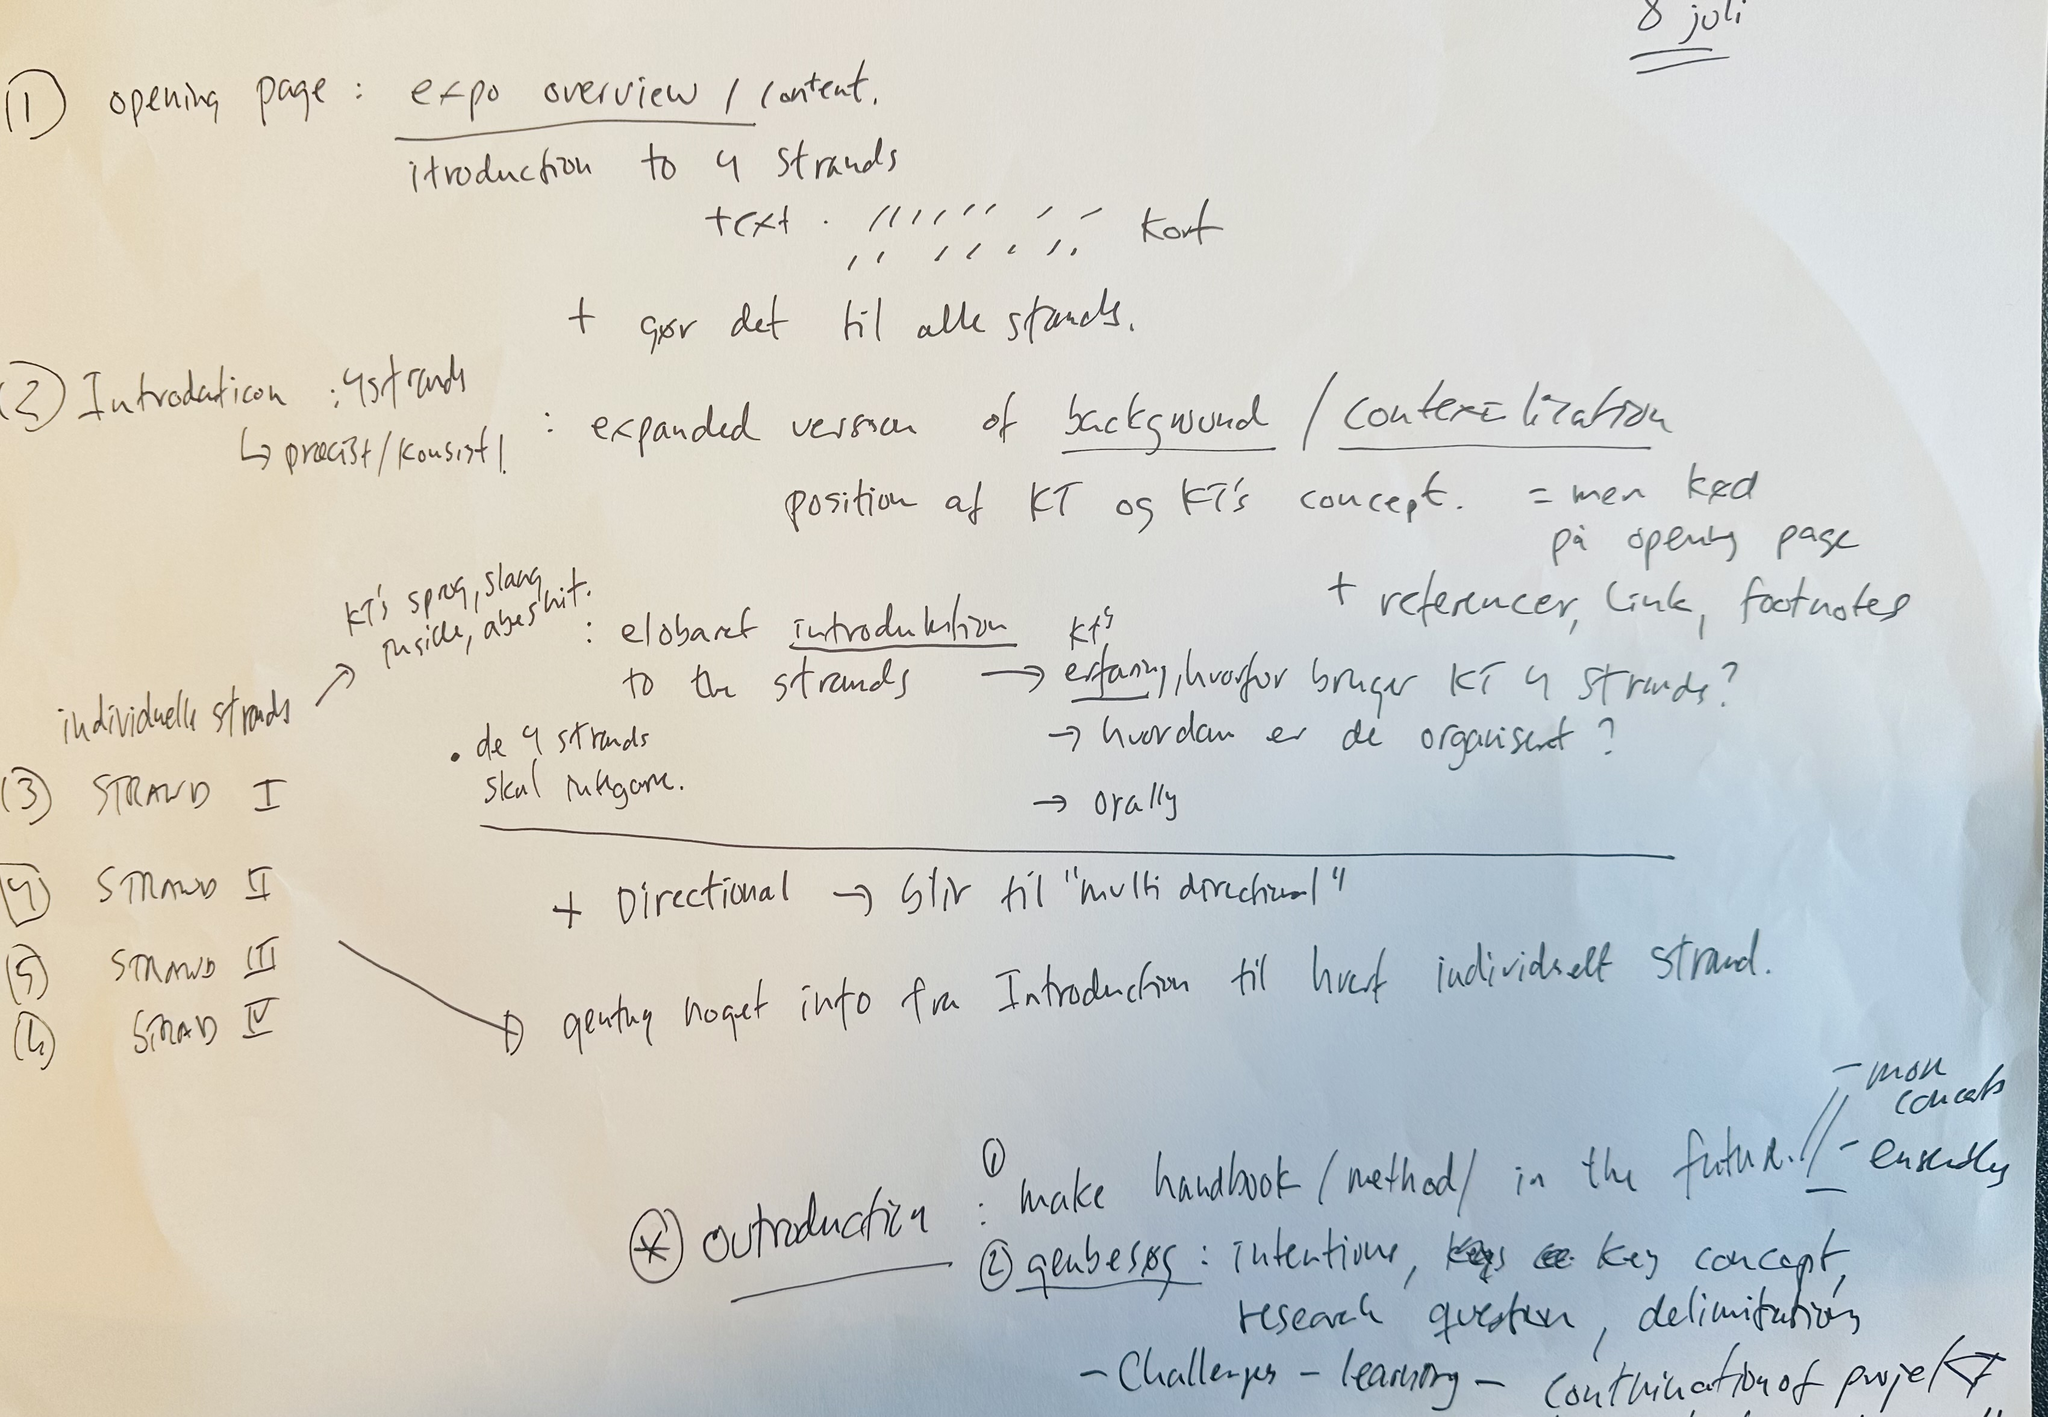 8 juli
(1) opening page : expo overview / content.
itroduction to 4 strands
text . kort
+ gør det til alle strands.
(2) Introduction : 4 strands
↳ præcist / konsist!
: expanded version of background / contextualization
position af KT og KT's concept. = mer kød
på opening page
+ referencer, link, footnotes
KT's sprog, slang
inside,
: elobaret introduktion
to the strands
→ KT's
erfaring, hvorfor bruger KT 4 strands?
→ hvordan er de organiseret?
→ orally
• de 4 strands
skal integare.
individuelle strands
(3) STRAND I
(4) STRAND II
(5) STRAND III
(6) STRAD IV
+ Directional → blir til "multi directional"
gentag noget info fra Introduction til hvert individuelt strand.
* outroduction : ① make handbook / method / in the future.
- more
concerts
- ensembly
② genbesøg : intentions, key concept,
research question, delimitation
- Challenges - learning - continuation of projekt